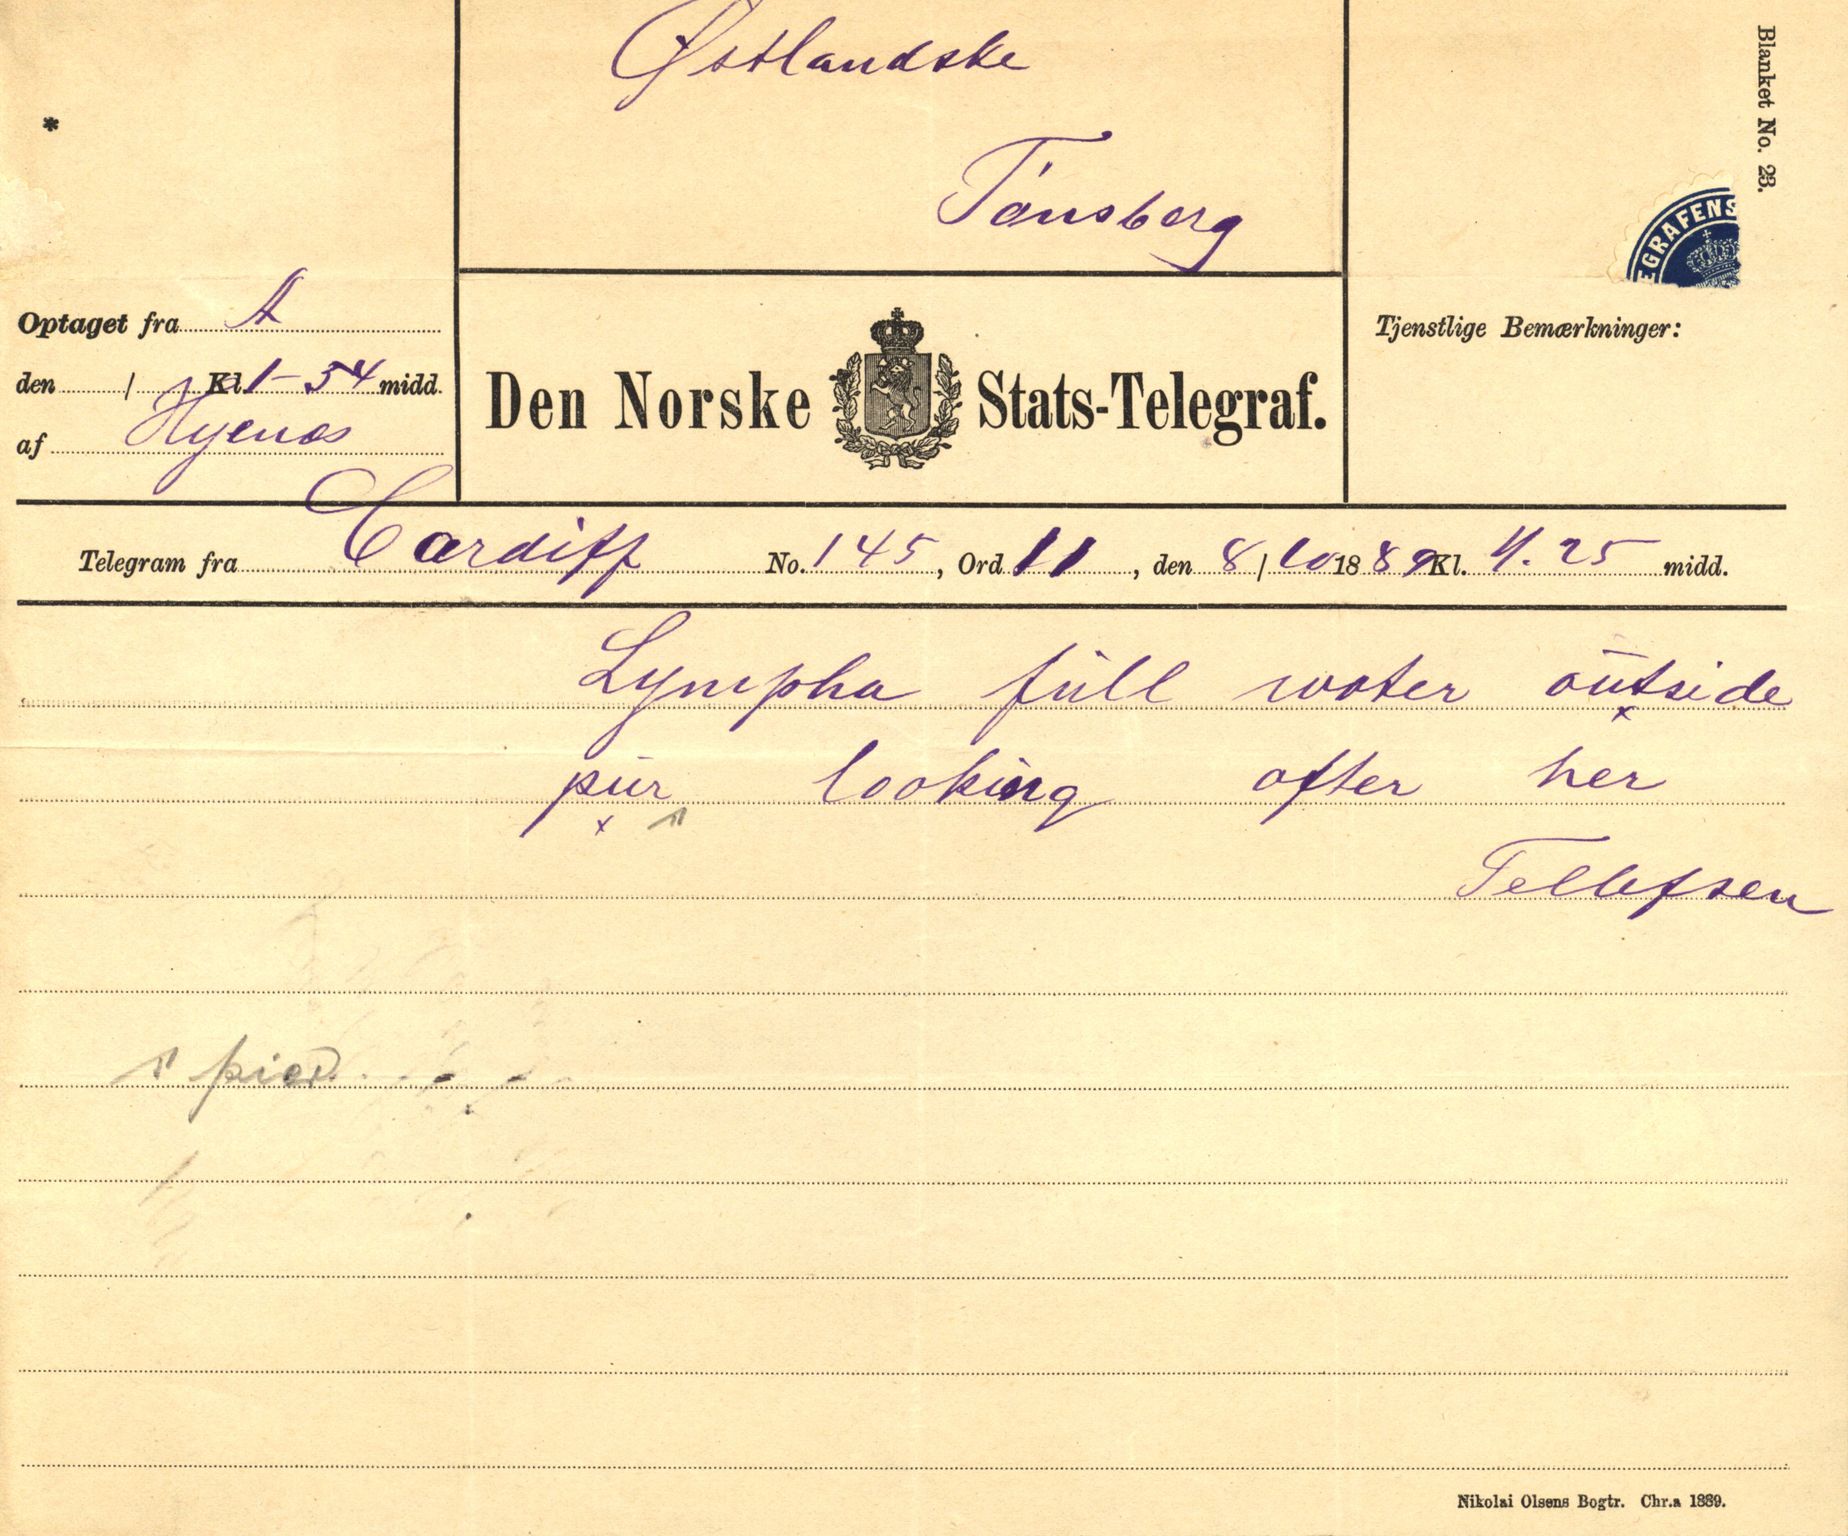 Østlandske
Tønsberg
Blanket No. 23.
*
EGRAFENS
Optaget fra A
den / Kl. 1-54 midd.
af
Den Norske Stats-Telegraf.
Tjenstlige Bemærkninger:
Telegram fra Cardiff No. 145, Ord 11, den 8/10 1889 Kl. 4.25 midd.
Lympha full water outside
pür looking after her
Tellefsen
pier
Nikolai Olsens Bogtr. Chr.a 1889.